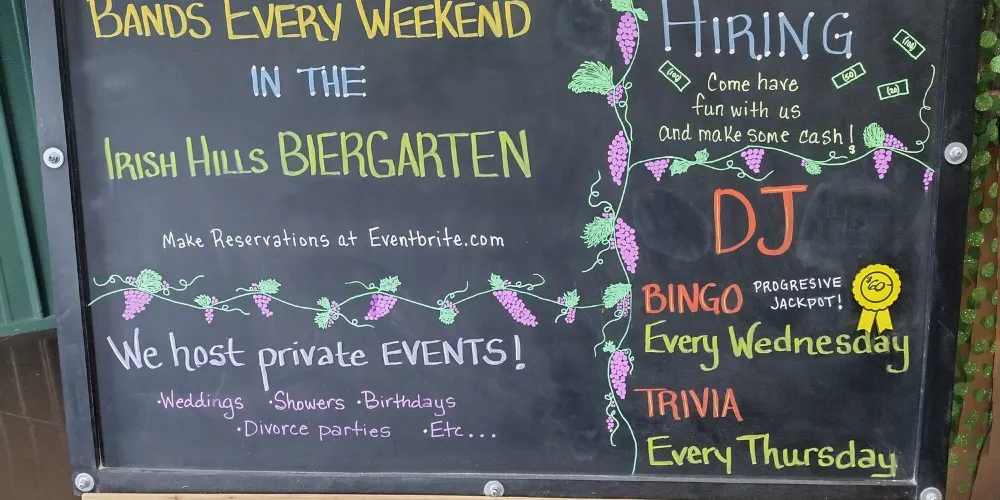 BANDS EVERY WEEKEND
IN THE
IRISH HILLS BIERGARTEN
Make Reservations at Eventbrite.com
We host private EVENTS!
·Weddings ·Showers ·Birthdays
·Divorce parties ·Etc...
HIRING
(100) (50) (100)
(20)
Come have
fun with us
and make some cash!
$
DJ
BINGO PROGRESIVE JACKPOT!
Every Wednesday
TRIVIA
Every Thursday